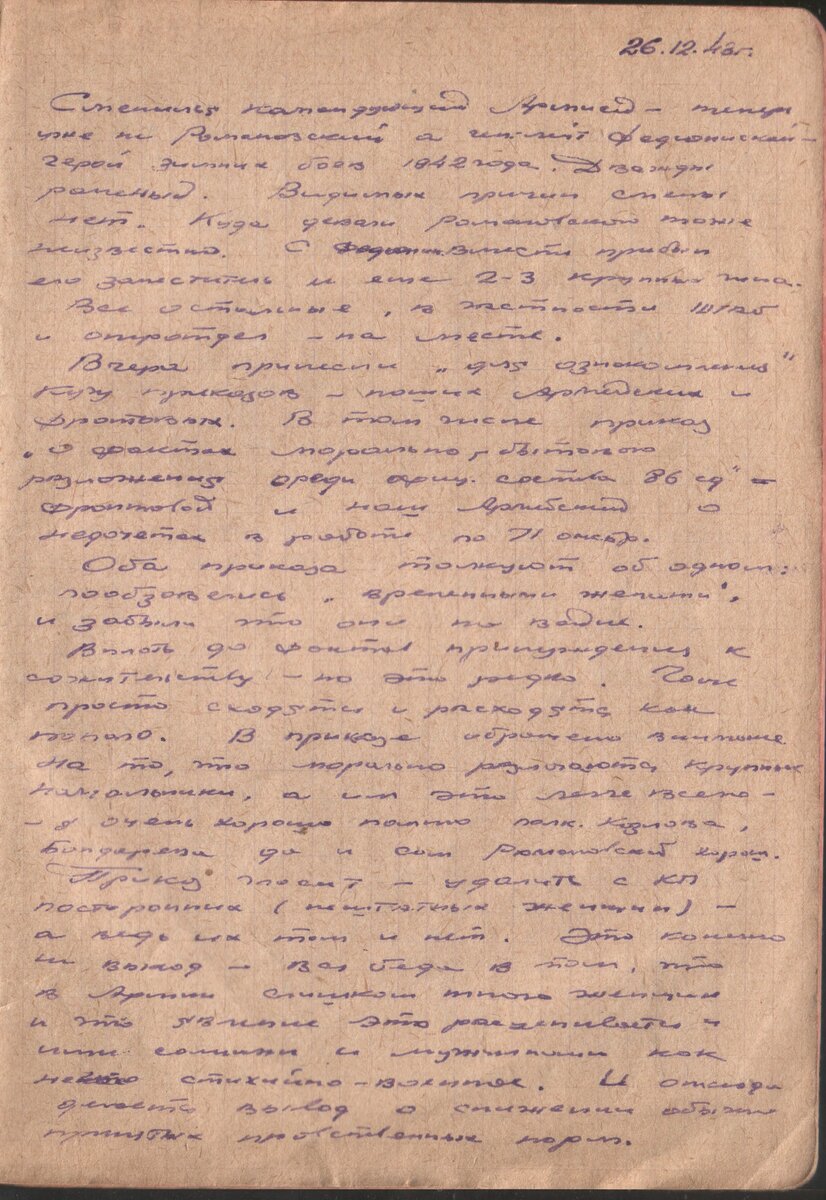 26.12.43г.
Сменился командующий Армией – теперь
уже не Романовский а ген. л-т Федюнинский –
герой зимних боев 1942 года. Дважды
раненый. Видимых причин смены
нет. Куда девали Романовского тоже
неизвестно. С Федюнин. вместе прибыл
его заместитель и еще 2-3 крупных чина.
Все остальные, в частности штаб
и оперотдел – на месте.
Вчера принесли „для ознакомления"
кучу приказов – наших Армейских и
фронтовых. В том числе приказ
„о фактах морально-бытового
разложения среди офиц. состава 86 сд" –
фронтовой и наш Армейский о
недочетах в работе по
Оба приказа толкуют об одном:
пообзавелись „временными женами",
и забыли что они на войне.
Вплоть до фактов принуждения к
сожительству – но это редко. Чаще
просто сходятся и расходятся как
попало. В приказе обращено внимание
на то, что морально разлагаются крупные
начальники, а им это легче всего –
– я очень хорошо помню полк. Козлова,
Бондарева да и сам Романовский хорош.
Приказ гласит – удалить с КП
посторонних (нештатных женщин) –
а ведь их там и нет. Это конечно
не выход – вся беда в том, что
в Армии слишком много женщин
и что явление это расценивается и
ими самими и мужчинами как
нечто стихийно-военное. И отсюда
делается вывод о снижении обычно
принятых нравственных норм.